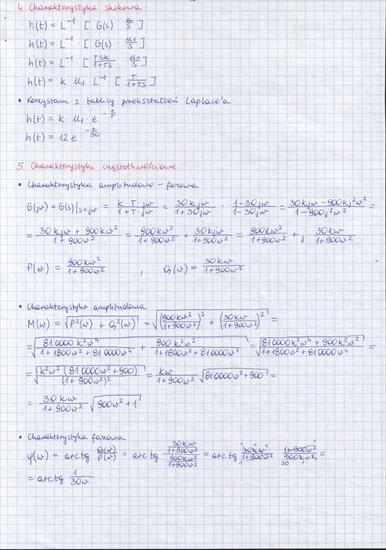 4. Charakterystyka skokowa
h(t) = L⁻¹ [ G(s) u/s ]
h(t) = L⁻¹ [ G(s) u₁/s ]
h(t) = L⁻¹ [ Tsk/(1+Ts) u₁/s ]
h(t) = k u₁ L⁻¹ [ T/(1+Ts) ]
• Korzystam z tablicy przekształceń Laplace'a
h(t) = k u₁ · e^(-t/T)
h(t) = 12 e^(-t/30)
5. Charakterystyki częstotliwościowe
• Charakterystyka amplitudowo - fazowa
G(jw) = G(s)|s=jw = k T jw/(1+T jw) = 30kjw/(1+30jw) · (1-30jw)/(1-30jw) = (30kjw - 900kj²w²)/(1-900j²w²) =
= (30kjw + 900kw²)/(1+900w²) = 900kw²/(1+900w²) + 30kjw/(1+900w²) = 900kw²/(1+900w²) + j 30kw/(1+900w²)
P(w) = 900kw²/(1+900w²) , Q(w) = 30kw/(1+900w²)
• Charakterystyka amplitudowa
M(w) = √(P²(w) + Q²(w)) = √((900kw²/(1+900w²))² + (30kw/(1+900w²))²) =
= √(810000k²w⁴/(1+1800w²+810000w⁴) + 900k²w²/(1+1800w²+810000w⁴)) = √((810000k²w⁴ + 900k²w²)/(1+1800w²+810000w⁴)) =
= √(k²w²(810000w²+900)/(1+900w²)²) = kw/(1+900w²) √(810000w²+900) =
= 30kw/(1+900w²) √(900w²+1)
• Charakterystyka fazowa
φ(w) = arctg Q(w)/P(w) = arctg (30kw/(1+900w²))/(900kw²/(1+900w²)) = arctg 30kw/(1+900w²) · (1+900w²)/(900kw²) =
= arctg 1/(30w)